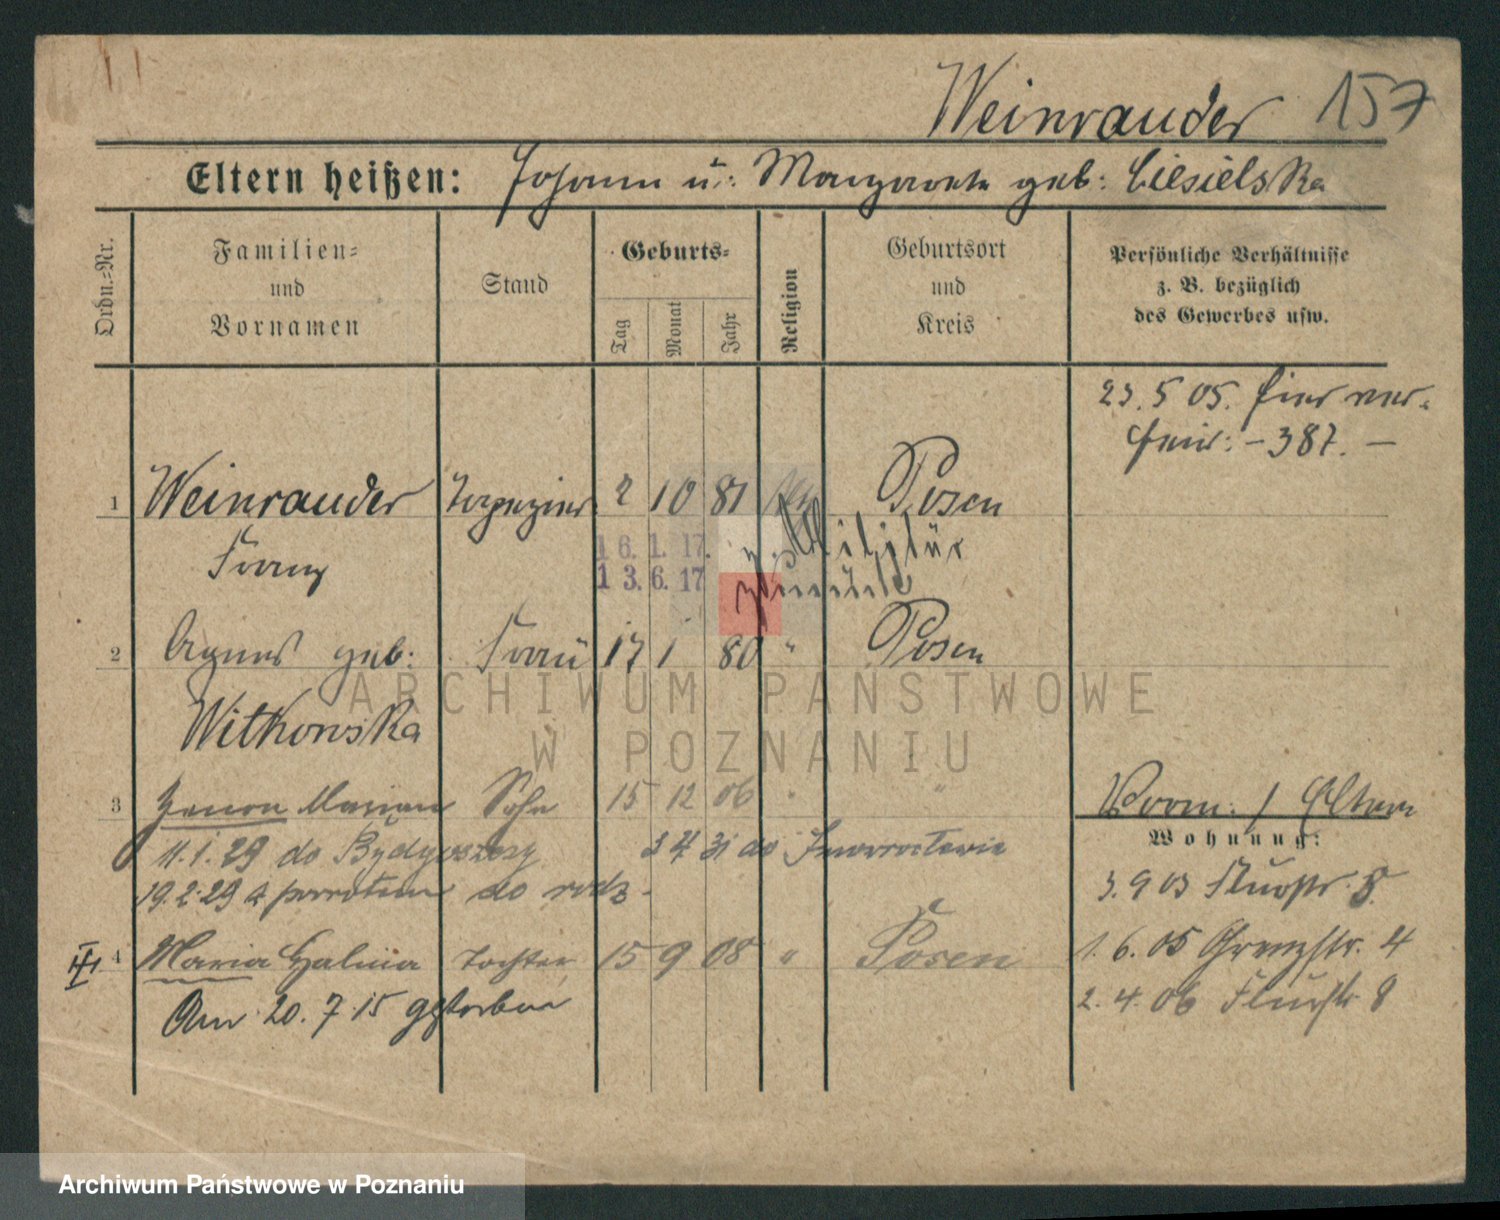 Weinrauder 157
Eltern heißen: Johann u: Margarete geb: Ciesielska
Ordn.=Nr.
Familien=
und
Vornamen
Stand
Geburts=
Tag
Monat
Jahr
Religion
Geburtsort
und
Kreis
Persönliche Verhältnisse
z. B. bezüglich
des Gewerbes usw.
23. 5 05. hier ver=
heir: – 387. –
1 Weinrauder Tapezier 2 10 81 Posen
Franz
16. 1. 17. z. Militär
13. 6. 17 zurück
2 Agnes geb: Frau 17 1 80 " Posen
Witkowska
3 Zenon Marian Sohn 15 12 06 " "
11.1.29 do Bydgoszczy 3 4 31 do Inowrocławia
19.2.29 z powrotem do rodz.
4 Maria Halina Tochter 15 9 08 " Posen
Am 20. 7. 15 gestorben
Vorm: / Eltern
Wohnung:
3. 9 03 Flurstr. 8
1. 6. 05 Grenzstr. 4
2. 4. 06 Flurstr 8
ARCHIWUM PAŃSTWOWE
W POZNANIU
Archiwum Państwowe w Poznaniu